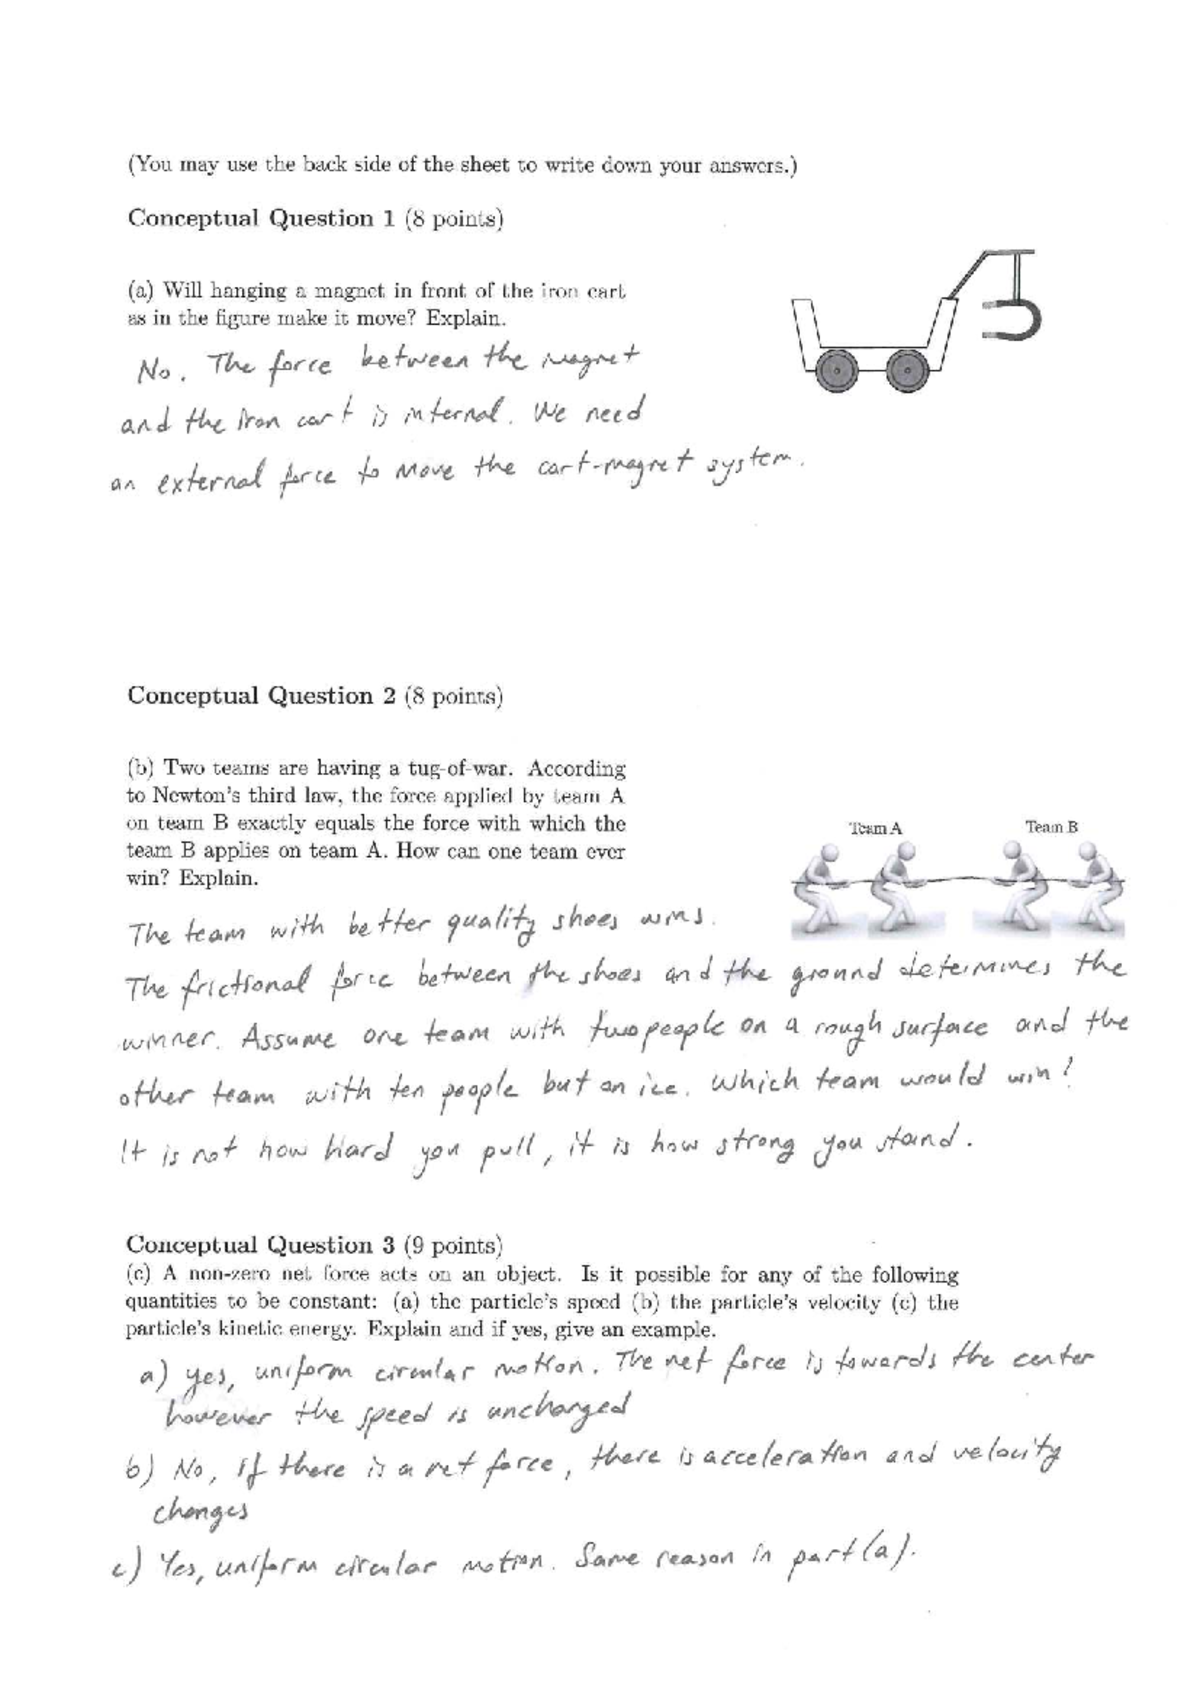 (You may use the back side of the sheet to write down your answers.)
Conceptual Question 1 (8 points)
(a) Will hanging a magnet in front of the iron cart
as in the figure make it move? Explain.
No. The force between the magnet
and the iron cart is internal. We need
an external force to move the cart-magnet system.
Conceptual Question 2 (8 points)
(b) Two teams are having a tug-of-war. According
to Newton's third law, the force applied by team A
on team B exactly equals the force with which the
team B applies on team A. How can one team ever
win? Explain.
Team A Team B
The team with better quality shoes wins.
The frictional force between the shoes and the ground determines the
winner. Assume one team with two people on a rough surface and the
other team with ten people but on ice. Which team would win?
It is not how hard you pull, it is how strong you stand.
Conceptual Question 3 (9 points)
(c) A non-zero net force acts on an object. Is it possible for any of the following
quantities to be constant: (a) the particle's speed (b) the particle's velocity (c) the
particle's kinetic energy. Explain and if yes, give an example.
a) yes, uniform circular motion. The net force is towards the center
however the speed is unchanged
b) No, if there is a net force, there is acceleration and velocity
changes
c) Yes, uniform circular motion. Same reason in part (a).